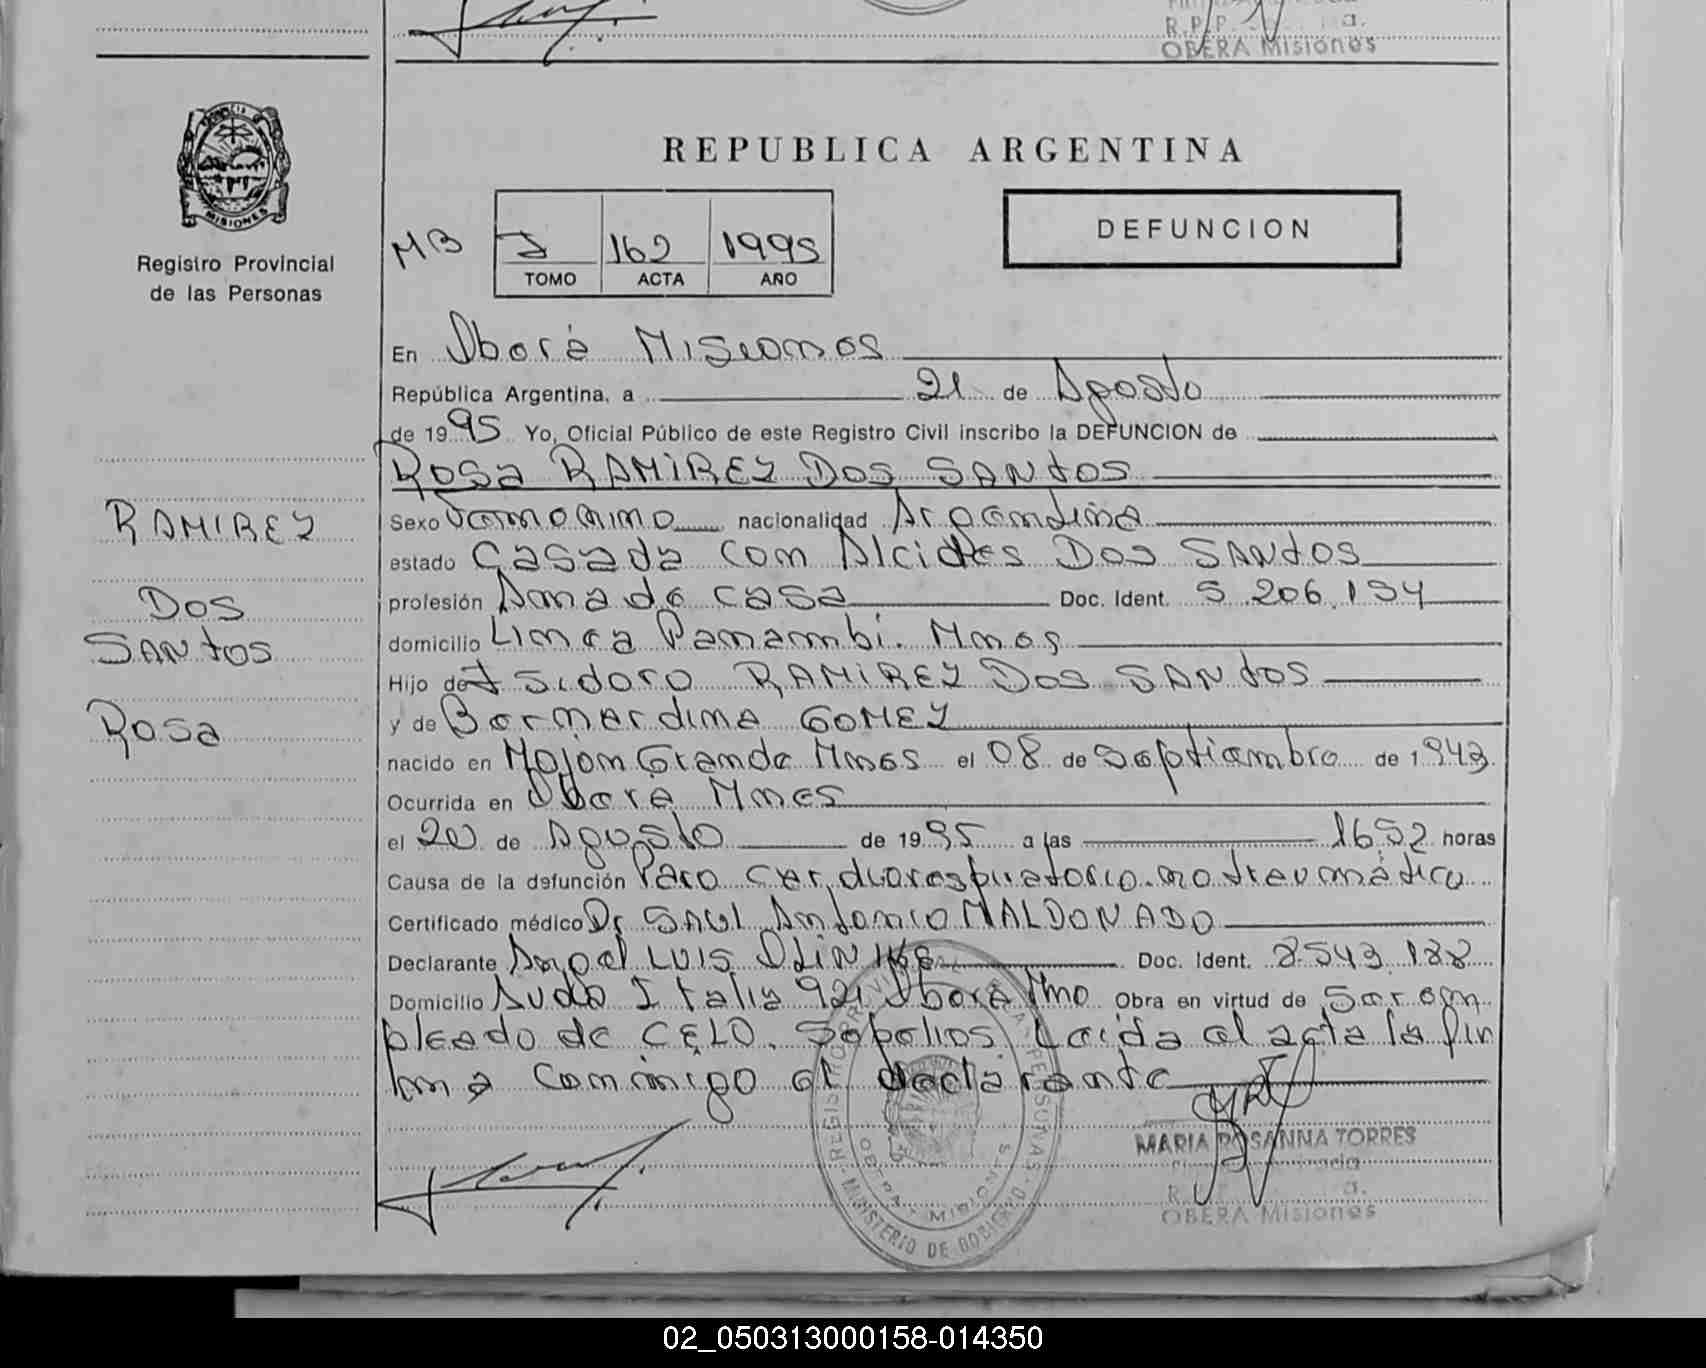 R.P.P.
OBERA Misiones
MISIONES
Registro Provincial
de las Personas
REPUBLICA ARGENTINA
DEFUNCION
MB
I 162 1995
TOMO ACTA AÑO
RAMIREZ
DOS
SANTOS
Rosa
En Oberá Misiones
República Argentina, a 21 de Agosto
de 1995 Yo, Oficial Público de este Registro Civil inscribo la DEFUNCION de
Rosa RAMIREZ DOS SANTOS
Sexo Femenino nacionalidad Argentina
estado Casada con Alcides Dos SANTOS
profesión Ama de casa Doc. Ident. 5.206.194
domicilio Linea Panambi. Mnes
Hijo de Isidoro RAMIREZ DOS SANTOS
y de Bernardina GOMEZ
nacido en Mojon Grande Mnes el 08 de Septiembre de 1943
Ocurrida en Oberá Mnes
el 20 de Agosto de 1995 a las 16,52 horas
Causa de la defunción Paro cardiorespiratorio no traumático
Certificado médico Dr SAUL Antonio MALDONADO
Declarante Angel LUIS Doc. Ident. 8.543.188
Domicilio Avda Italia 921 Oberá Mnes Obra en virtud de Ser em
pleado de CELO. Sepelios. Leida el acta la fir
ma conmigo el declarante
MARIA ROSANNA TORRES
R.
OBERA Misiones
REGISTRO PROVINCIAL DE LAS PERSONAS
OBERA - MISIONES
MINISTERIO DE GOBIERNO
02_050313000158-014350